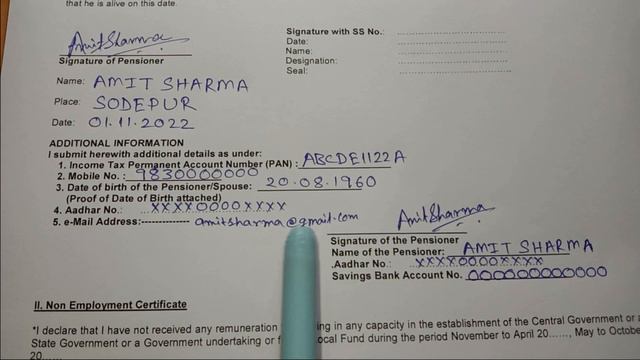 that he is alive on this date.
Amit Sharma
Signature of Pensioner
Name: AMIT SHARMA
Place: SODEPUR
Date: 01.11.2022
Signature with SS No.: ........................
Date: ........................
Name: ........................
Designation: ........................
Seal: ........................
ADDITIONAL INFORMATION
I submit herewith additional details as under:
1. Income Tax Permanent Account Number (PAN) : ABCDE1122A
2. Mobile No. : 9830000000
3. Date of birth of the Pensioner/Spouse: 20.08.1960
(Proof of Date of Birth attached)
4. Aadhar No.: XXXX0000XXXX
5. e-Mail Address:------------- amitsharma@gmail.com
Amit Sharma
Signature of the Pensioner
Name of the Pensioner: AMIT SHARMA
.Aadhar No.: XXXX0000XXXX
Savings Bank Account No. 00000000000
II. Non Employment Certificate
*I declare that I have not received any remuneration in any capacity in the establishment of the Central Government or a
State Government or a Government undertaking or Local Fund during the period November to April 20......, May to October
20......